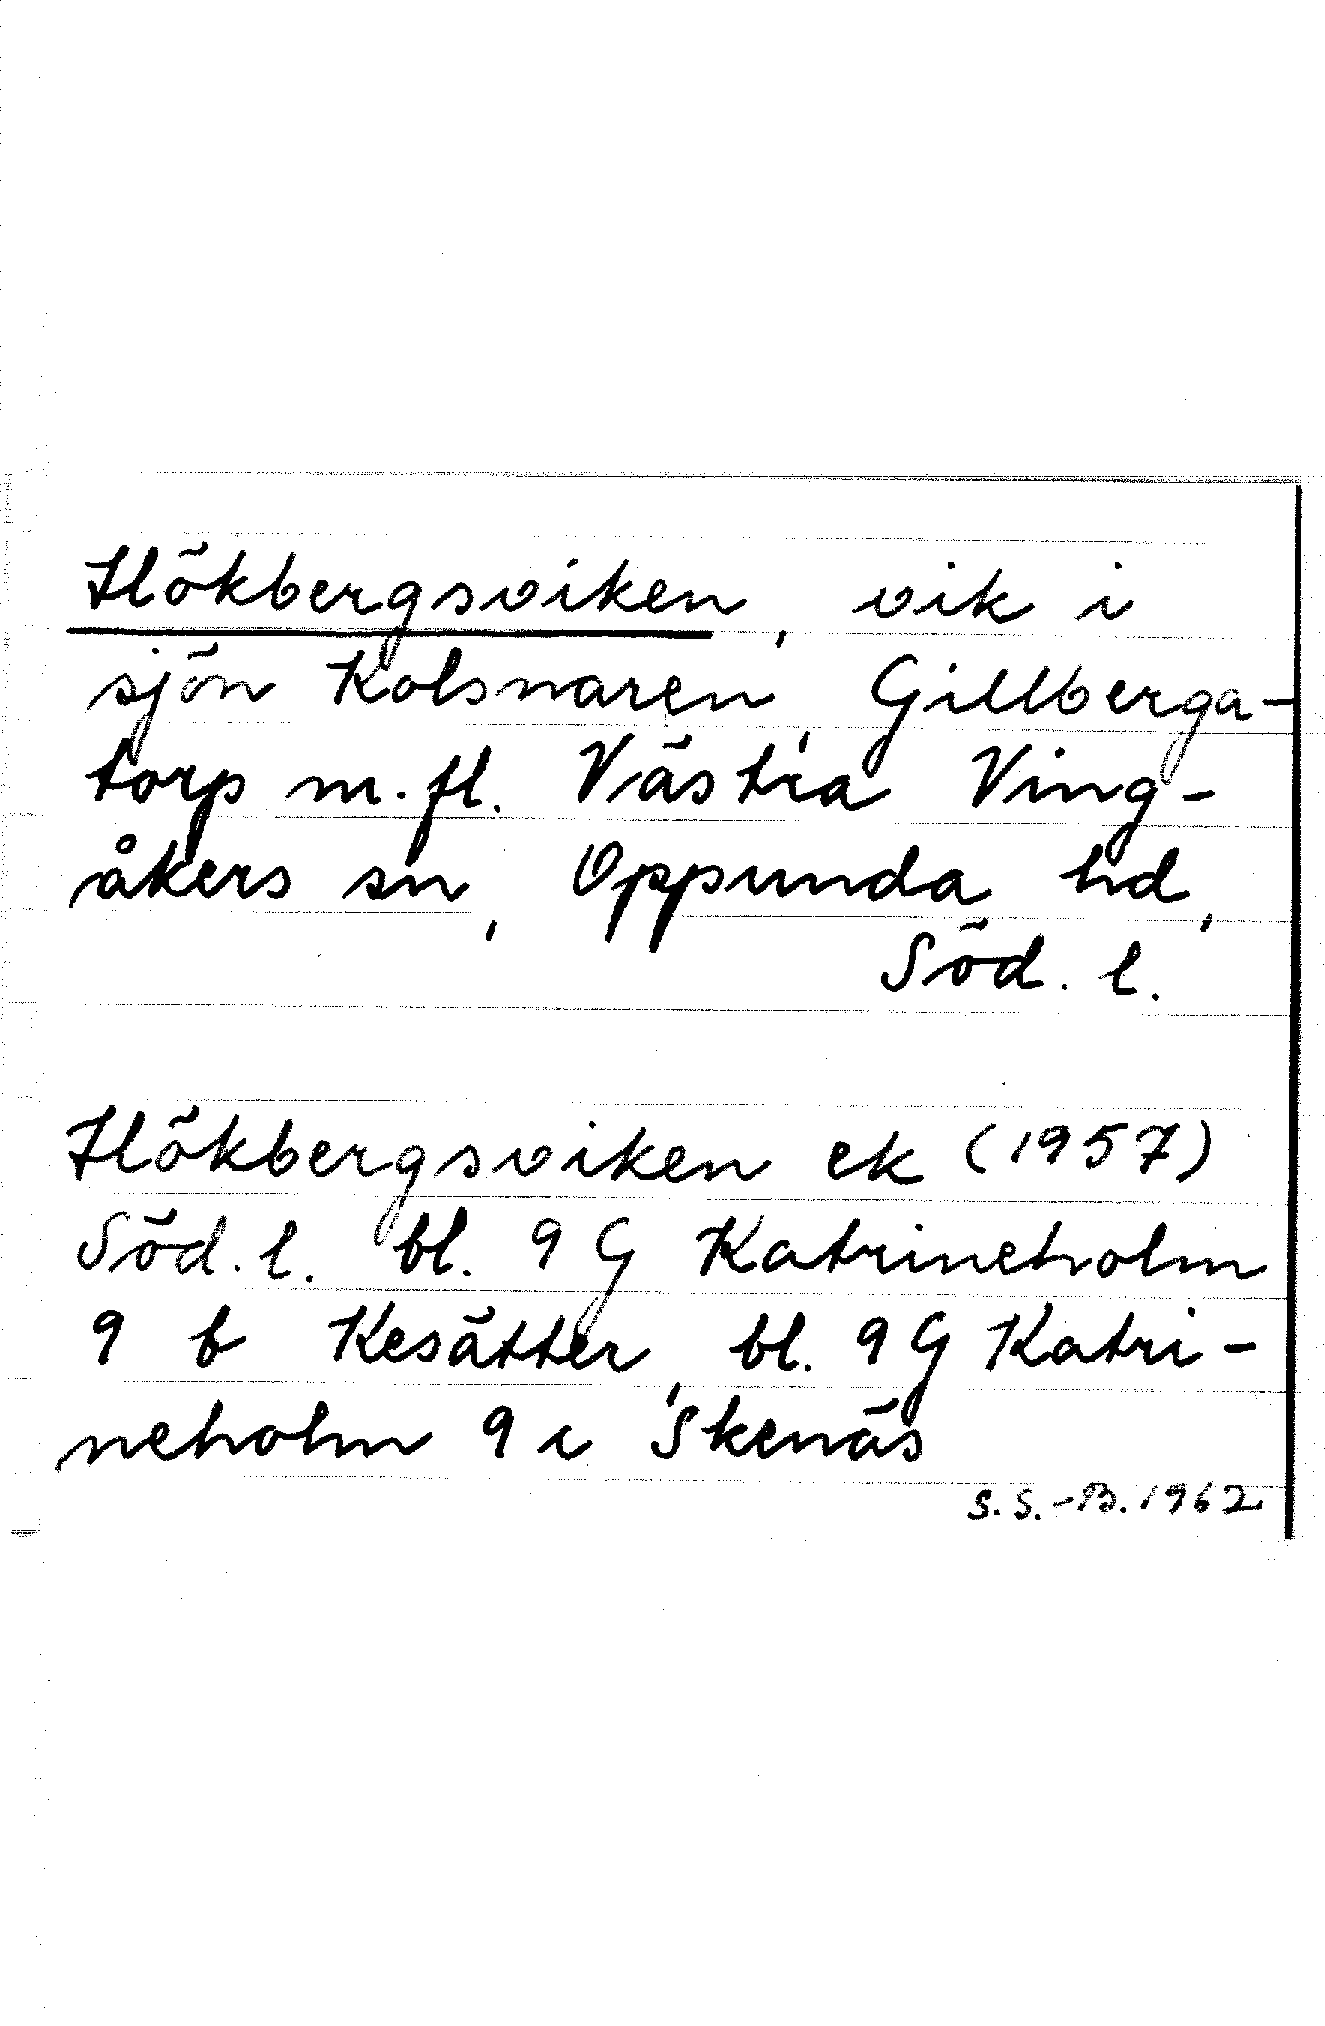 Hökbergsviken, vik i
sjön Kolsnaren, Gillberga-
torp m.fl. Västra Ving-
åkers sn, Oppunda hd,
Söd. l.
Hökbergsviken ek (1957)
Söd. l. bl. 9 G Katrineholm
9 b Kesätter, bl. 9 G Katri-
neholm 9 c Skenäs
S. S.-B. 1962